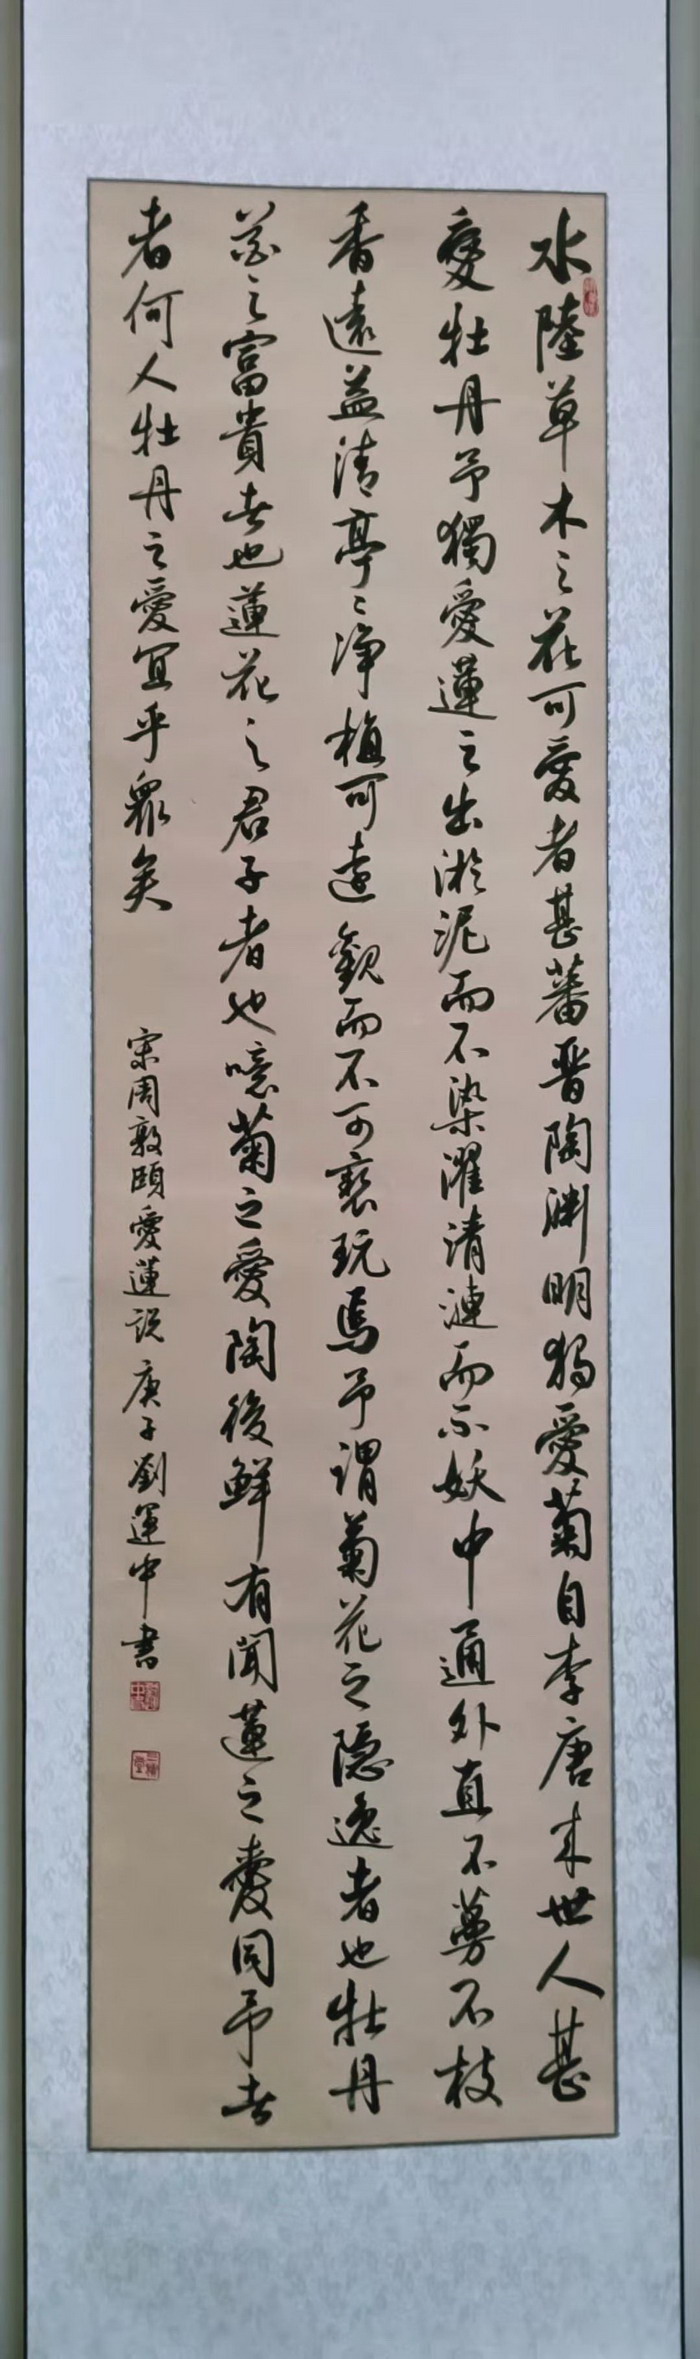 水陸草木之花可愛者甚蕃晉陶淵明獨愛菊自李唐来世人甚
愛牡丹予獨愛蓮之出淤泥而不染濯清漣而不妖中通外直不蔓不枝
香遠益清亭〻净植可遠觀而不可褻玩焉予謂菊花之隐逸者也牡丹
花之富貴者也蓮花之君子者也噫菊之愛陶後鮮有聞蓮之愛同予者
者何人牡丹之愛宜乎衆矣
宋周敦頤愛蓮説 庚子劉運中書